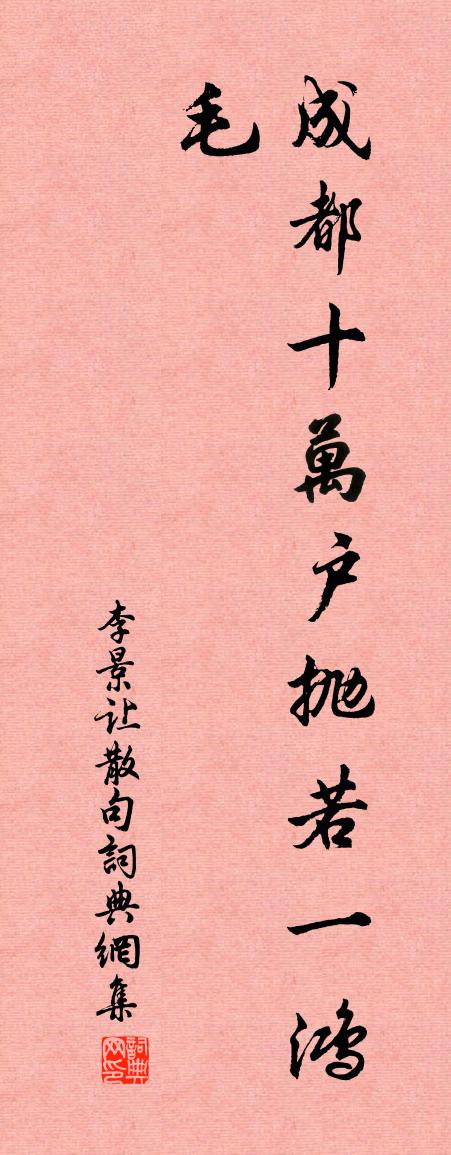 成都十萬户抛若一鴻
毛
李景让散句詞典網集
詞典网印